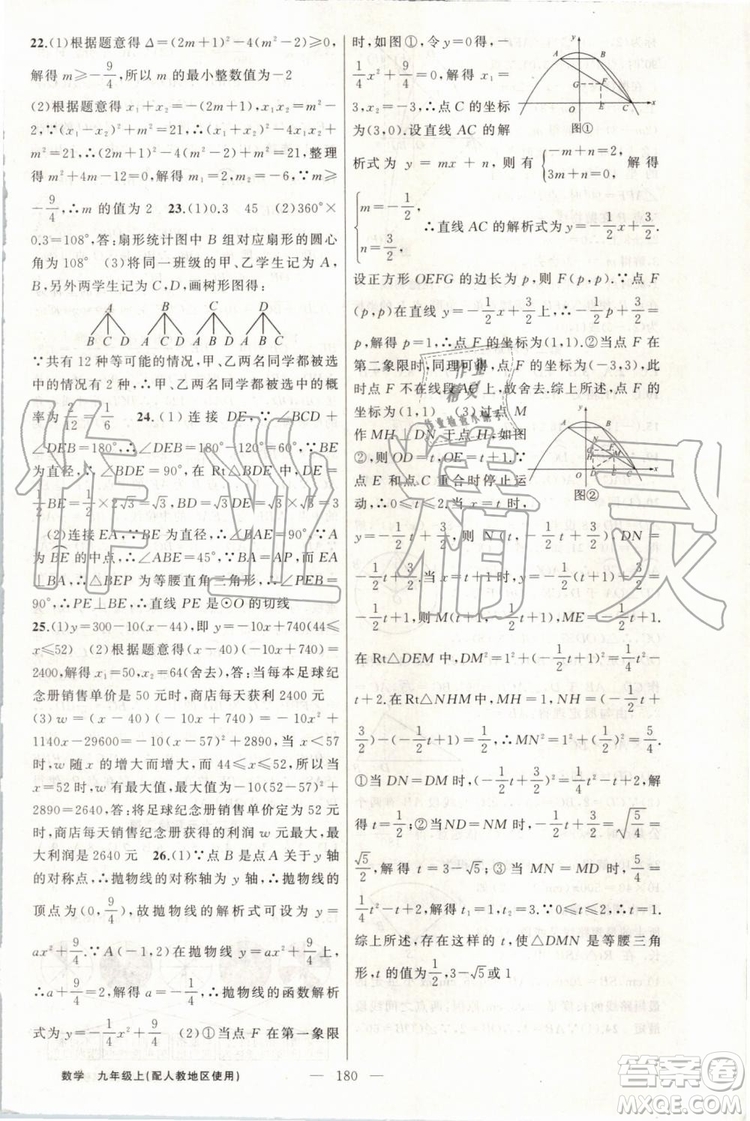 22.(1)根据题意得 Δ=(2m+1)²-4(m²-2)≥0,
解得 m≥-9/4,所以 m 的最小整数值为-2
(2)根据题意得 x₁+x₂=-(2m+1),x₁x₂=m²-
2,∵(x₁-x₂)²+m²=21,∴(x₁+x₂)²-4x₁x₂+
m²=21,∴(2m+1)²-4(m²-2)+m²=21,整理
得 m²+4m-12=0,解得 m₁=2,m₂=-6,∵m≥-
9/4,∴m 的值为 2 23.(1)0.3 45 (2)360°×
0.3=108°,答:扇形统计图中 B 组对应扇形的圆心
角为 108° (3)将同一班级的甲、乙学生记为 A、
B,另外两学生记为 C、D,画树形图得:
A B C D
B C D A C D A B D A B C
∵共有 12 种等可能的情况,甲、乙两名同学都被选
中的情况有 2 种,∴甲、乙两名同学都被选中的概
率为 2/12=1/6 24.(1)连接 DE,∵∠BCD+
∠DEB=180°,∴∠DEB=
∵BE 为直径,∴∠BDE=90°,在 Rt△BDE 中,DE=
1/2BE=1/2×2√3=√3,BD=√3DE=√3×√3=3
(2)连接 EA,∵BE 为直径,∴∠BAE=90°,∵A
为 BE 的中点,∴∠ABE=45°,∵BA=AP,EA
⊥BA,∴△BEP 为等腰直角三角形,∴∠PEB=
90°,∴PE⊥BE,∴直线 PE 是⊙O 的切线
25.(1)y=300-10(x-44),即 y=-10x+740(44≤
x≤52) (2)根据题意得(x-40)(-10x+740)=
2400,解得 x₁=50,x₂=64(舍去),答:当每本足球纪
念册销售单价是 50 元时,商店每天获利 2400 元
(3)w=(x-40)(-10x+740)=-10x²+
1140x-29600=-10(x-57)²+2890,当 x<57
时,w 随 x 的增大而增大,而 44≤x≤52,所以当
x=52 时,w 有最大值,最大值为-10(52-57)²+
2890=2640,答:将足球纪念册销售单价定为 52 元
时,商店每天销售纪念册获得的利润 w 元最大,最
大利润是 2640 元 26.(1)∵点 B 是点 A 关于 y 轴
的对称点,∴抛物线的对称轴为 y 轴,∴抛物线的
顶点为(0,9/4),故抛物线的解析式可设为 y=
ax²+9/4,∵A(-1,2)在抛物线 y=ax²+9/4上,
∴a+9/4=2,解得 a=-1/4,∴抛物线的函数解析
式为 y=-1/4x²+9/4 (2)①当点 F 在第一象限
时,如图①,令 y=0 得,-
1/4x²+9/4=0,解得 x₁=
3,x₂=-3,∴点 C 的坐标
为(3,0).设直线 AC 的解
图①
析式为 y=mx+n,则有 {-m+n=2, 3m+n=0, 解得
{m=-1/2, n=3/2, ∴直线 AC 的解析式为 y=-1/2x+3/2
设正方形 OEFG 的边长为 p,则 F(p,p).∵点 F
(p,p)在直线 y=-1/2x+3/2上,∴-1/2p+3/2=
p,解得 p=1,∴点 F 的坐标为(1,1) ②当点 F 在
第二象限时,同理可得点 F 的坐标为(-3,3),此
时点 F 不在线段 AC 上,故舍去.综上所述,点 F 的
坐标为(1,1) (3)过点 M
作 MH⊥DN 于点 H,如图
②,则 OD=t,OE=t+1,∵
点 E 与点 C 重合时停止运
动,∴0≤t≤2,当 x=t 时,
图②
y=-1/2t+3/2,则 N(t,-1/2t+3/2),DN=
-1/2t+3/2,当 x=t+1 时,y=-1/2(t+1)+3/2=
-1/2t+1,则 M(t+1,-1/2t+1),ME=-1/2t+1.
在 Rt△DEM 中,DM²=1²+(-1/2t+1)²=1/4t²-
t+2.在 Rt△NHM 中,MH=1,NH=(-1/2t+
3/2)-(-1/2t+1)=1/2,∴MN²=1²+(1/2)²=5/4.
①当 DN=DM 时,(-1/2t+3/2)²=1/4t²-t+2,解
得 t=1/2;②当 ND=NM 时,-1/2t+3/2=√(5/4)=
√5/2,解得 t=3-√5;③当 MN=MD 时,5/4=
1/4t²-t+2,解得 t₁=1,t₂=3,∵0≤t≤2,∴t=1.
综上所述,存在这样的 t,使△DMN 是等腰三角
形,t 的值为1/2,3-√5或 1
数学 九年级上(配人教地区使用) — 180 —
作业精灵
答案圈
MXQE.COM